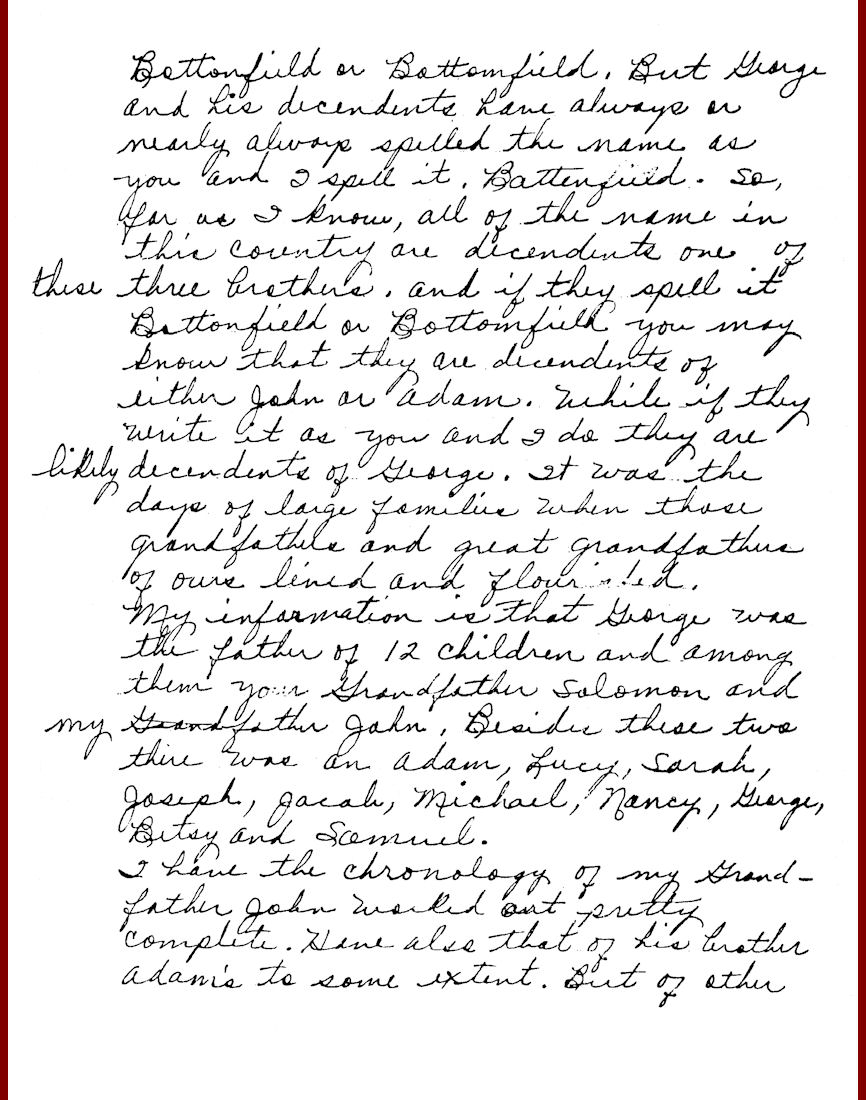 Bottonfield or Bottomfield. But George
and his decendents have always or
nearly always spelled the name as
you and I spell it. Battenfield. So,
far as I know, all of the name in
this country are decendents one of
these three brothers. and if they spell it
Bottonfield or Bottomfield you may
know that they are decendents of
either John or Adam. While if they
write it as you and I do they are
likely decendents of George. It was the
days of large families when those
grandfathers and great grandfathers
of ours lived and flourished.
My information is that George was
the father of 12 children and among
them your Grandfather Solomon and
my Grandfather John. Besides these two
there was an Adam, Lucy, Sarah,
Joseph, Jacab, Michael, Nancy, George,
Betsy and Samuel.
I have the chronology of my Grand-
father John worked out pretty
complete. Have also that of his brother
Adam's to some extent. But of other